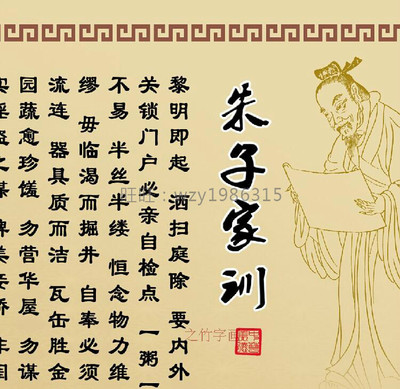 朱子家训
黎明即起 洒扫庭除 要内外
关锁门户 必亲自检点 一粥一
不易 半丝半缕 恒念物力维
缪 毋临渴而掘井 自奉必须
流连 器具质而洁 瓦缶胜金
园蔬愈珍馐 勿营华屋 勿谋
实淫盗之媒 婢美妾娇 非闺
旺旺：wzy1986315
之竹字画